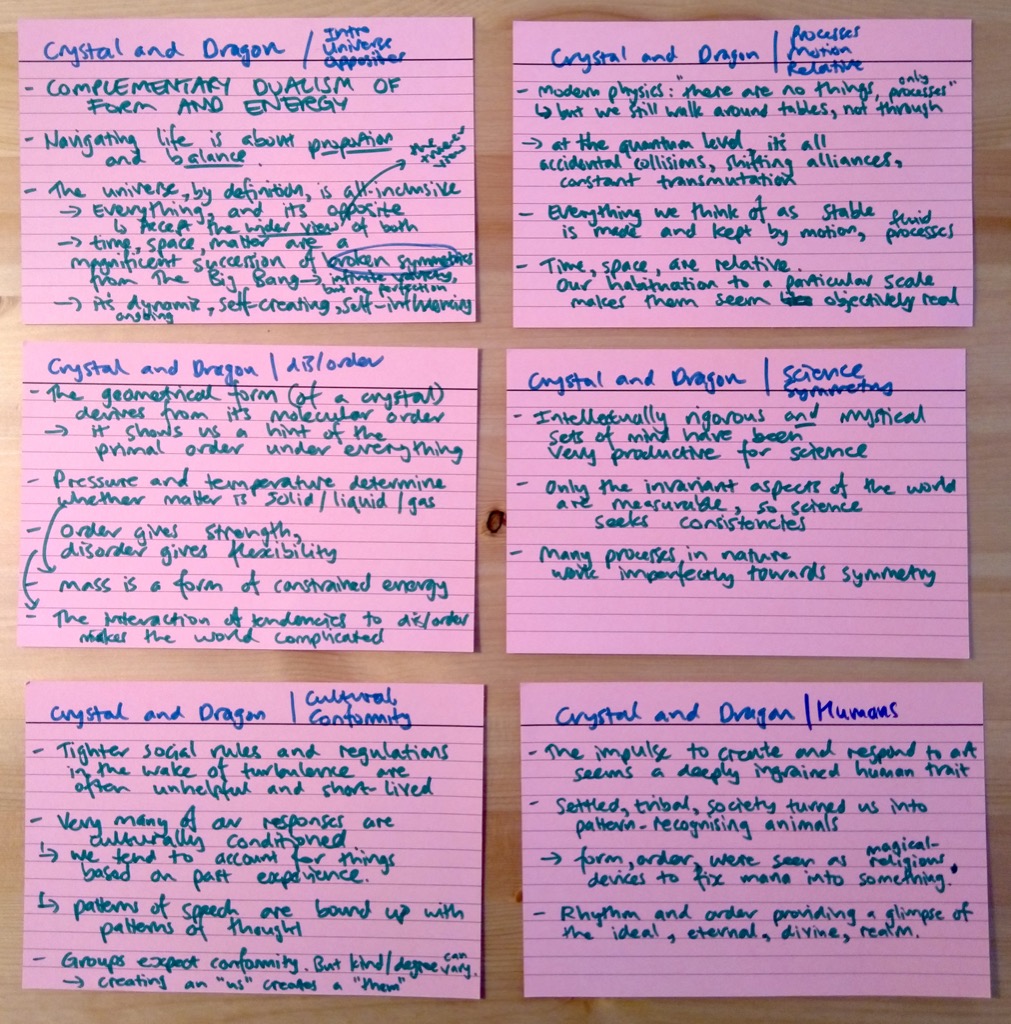 Crystal and Dragon / Intro
Universe
Opposites
- COMPLEMENTARY DUALISM OF
FORM AND ENERGY
- Navigating life is about proportion
and balance.
- The universe, by definition, is all-inclusive
→ Everything, and its opposite
↳ Accept the wider view of both
the view
→ time, space, matter are a
magnificent succession of broken symmetries
from The Big Bang → infinite variety,
but no perfection
→ it's dynamic, self-creating, self-influencing
ongoing
Crystal and Dragon / Processes
Motion
Relative
- Modern physics: "there are no things, only processes"
↳ but we still walk around tables, not through
→ at the quantum level, it's all
accidental collisions, shifting alliances,
constant transmutation
- Everything we think of as stable
is made and kept by motion, fluid processes
- Time, space, are relative.
Our habituation to a particular scale
makes them seem objectively real
Crystal and Dragon / dis/order
- The geometrical form (of a crystal)
derives from it's molecular order
→ it shows us a hint of the
primal order under everything
- Pressure and temperature determine
whether matter is solid/liquid/gas
- order gives strength,
disorder gives flexibility
- mass is a form of constrained energy
- The interaction of tendencies to dis/order
makes the world complicated
Crystal and Dragon / Science
Symmetry
- Intellectually rigorous and mystical
sets of mind have been
very productive for science
- Only the invariant aspects of the world
are measurable, so science
seeks consistencies
- Many processes in nature
work imperfectly towards symmetry
Crystal and Dragon / Cultural
Conformity
- Tighter social rules and regulations
in the wake of turbulence are
often unhelpful and short-lived
- Very many of our responses are
culturally conditioned
↳ we tend to account for things
based on past experience.
↳ patterns of speech are bound up with
patterns of thought
- Groups expect conformity. But kind/degree can vary.
→ creating an "us" creates a "them"
Crystal and Dragon / Humans
- The impulse to create and respond to art
seems a deeply ingrained human trait
- Settled, tribal, society turned us into
pattern-recognising animals
→ form, order, were seen as magical-religious
devices to fix mana into something.
- Rhythm and order providing a glimpse of
the ideal, eternal, divine, realm.